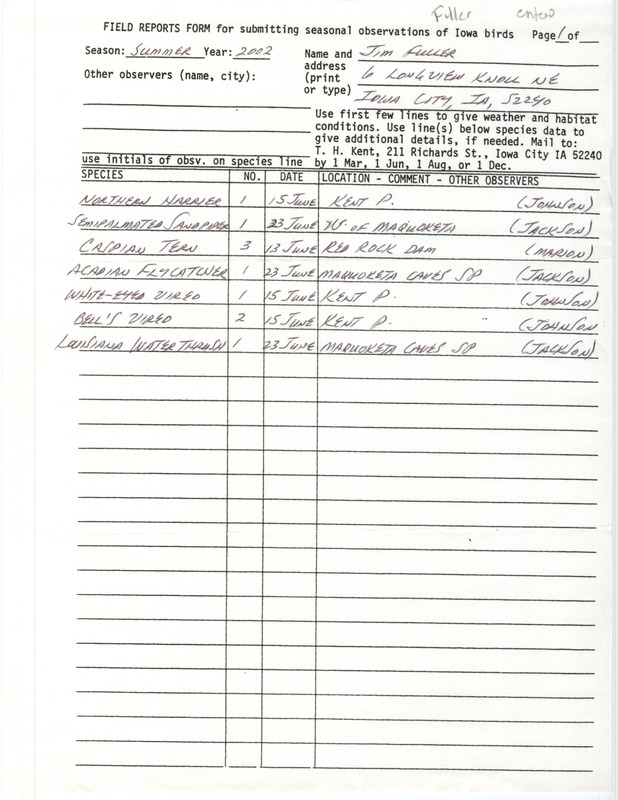 Fuller entered
FIELD REPORTS FORM for submitting seasonal observations of Iowa birds Page 1 of
Season: Summer Year: 2002 Name and Jim Fuller
address
Other observers (name, city): (print 6 Longview Knoll NE
or type) Iowa City, IA, 52240
Use first few lines to give weather and habitat
conditions. Use line(s) below species data to
give additional details, if needed. Mail to:
T. H. Kent, 211 Richards St., Iowa City IA 52240
use initials of obsv. on species line by 1 Mar, 1 Jun, 1 Aug, or 1 Dec.
SPECIES NO. DATE LOCATION - COMMENT - OTHER OBSERVERS
Northern Harrier 1 15 June Kent P. (Johnson)
Semipalmated Sandpiper 1 23 June W. of Maquoketa (Jackson)
Caspian Tern 3 13 June Red Rock Dam (Marion)
Acadian Flycatcher 1 23 June Maquoketa Caves SP (Jackson)
White-eyed Vireo 1 15 June Kent P. (Johnson)
Bell's Vireo 2 15 June Kent P. (Johnson
Louisiana Waterthrush 1 23 June Maquoketa Caves SP (Jackson)